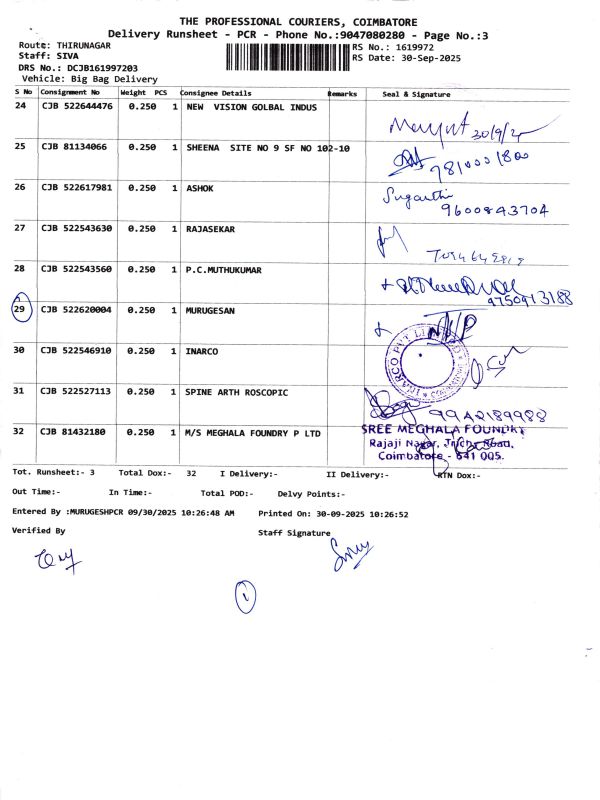 THE PROFESSIONAL COURIERS, COIMBATORE
Delivery Runsheet - PCR - Phone No.:9047080280 - Page No.:3
Route: THIRUNAGAR RS No.: 1619972
Staff: SIVA RS Date: 30-Sep-2025
DRS No.: DCJB161997203
Vehicle: Big Bag Delivery
S No Consignment No Weight PCS Consignee Details Remarks Seal & Signature
24 CJB 522644476 0.250 1 NEW VISION GOLBAL INDUS
30/9/25
25 CJB 81134066 0.250 1 SHEENA SITE NO 9 SF NO 102-10
26 CJB 522617981 0.250 1 ASHOK Suganthi
9600843704
27 CJB 522543630 0.250 1 RAJASEKAR
28 CJB 522543560 0.250 1 P.C.MUTHUKUMAR
9750913188
29 CJB 522620004 0.250 1 MURUGESAN
30 CJB 522546910 0.250 1 INARCO
INARCO PVT LIMITED
31 CJB 522527113 0.250 1 SPINE ARTH ROSCOPIC
9942189988
32 CJB 81432180 0.250 1 M/S MEGHALA FOUNDRY P LTD SREE MEGHALA FOUNDRY
Rajaji Nagar, Trichy Road,
Coimbatore - 641 005.
Tot. Runsheet:- 3 Total Dox:- 32 I Delivery:- II Delivery:- RTN Dox:-
Out Time:- In Time:- Total POD:- Delvy Points:-
Entered By :MURUGESHPCR 09/30/2025 10:26:48 AM Printed On: 30-09-2025 10:26:52
Verified By Staff Signature
1